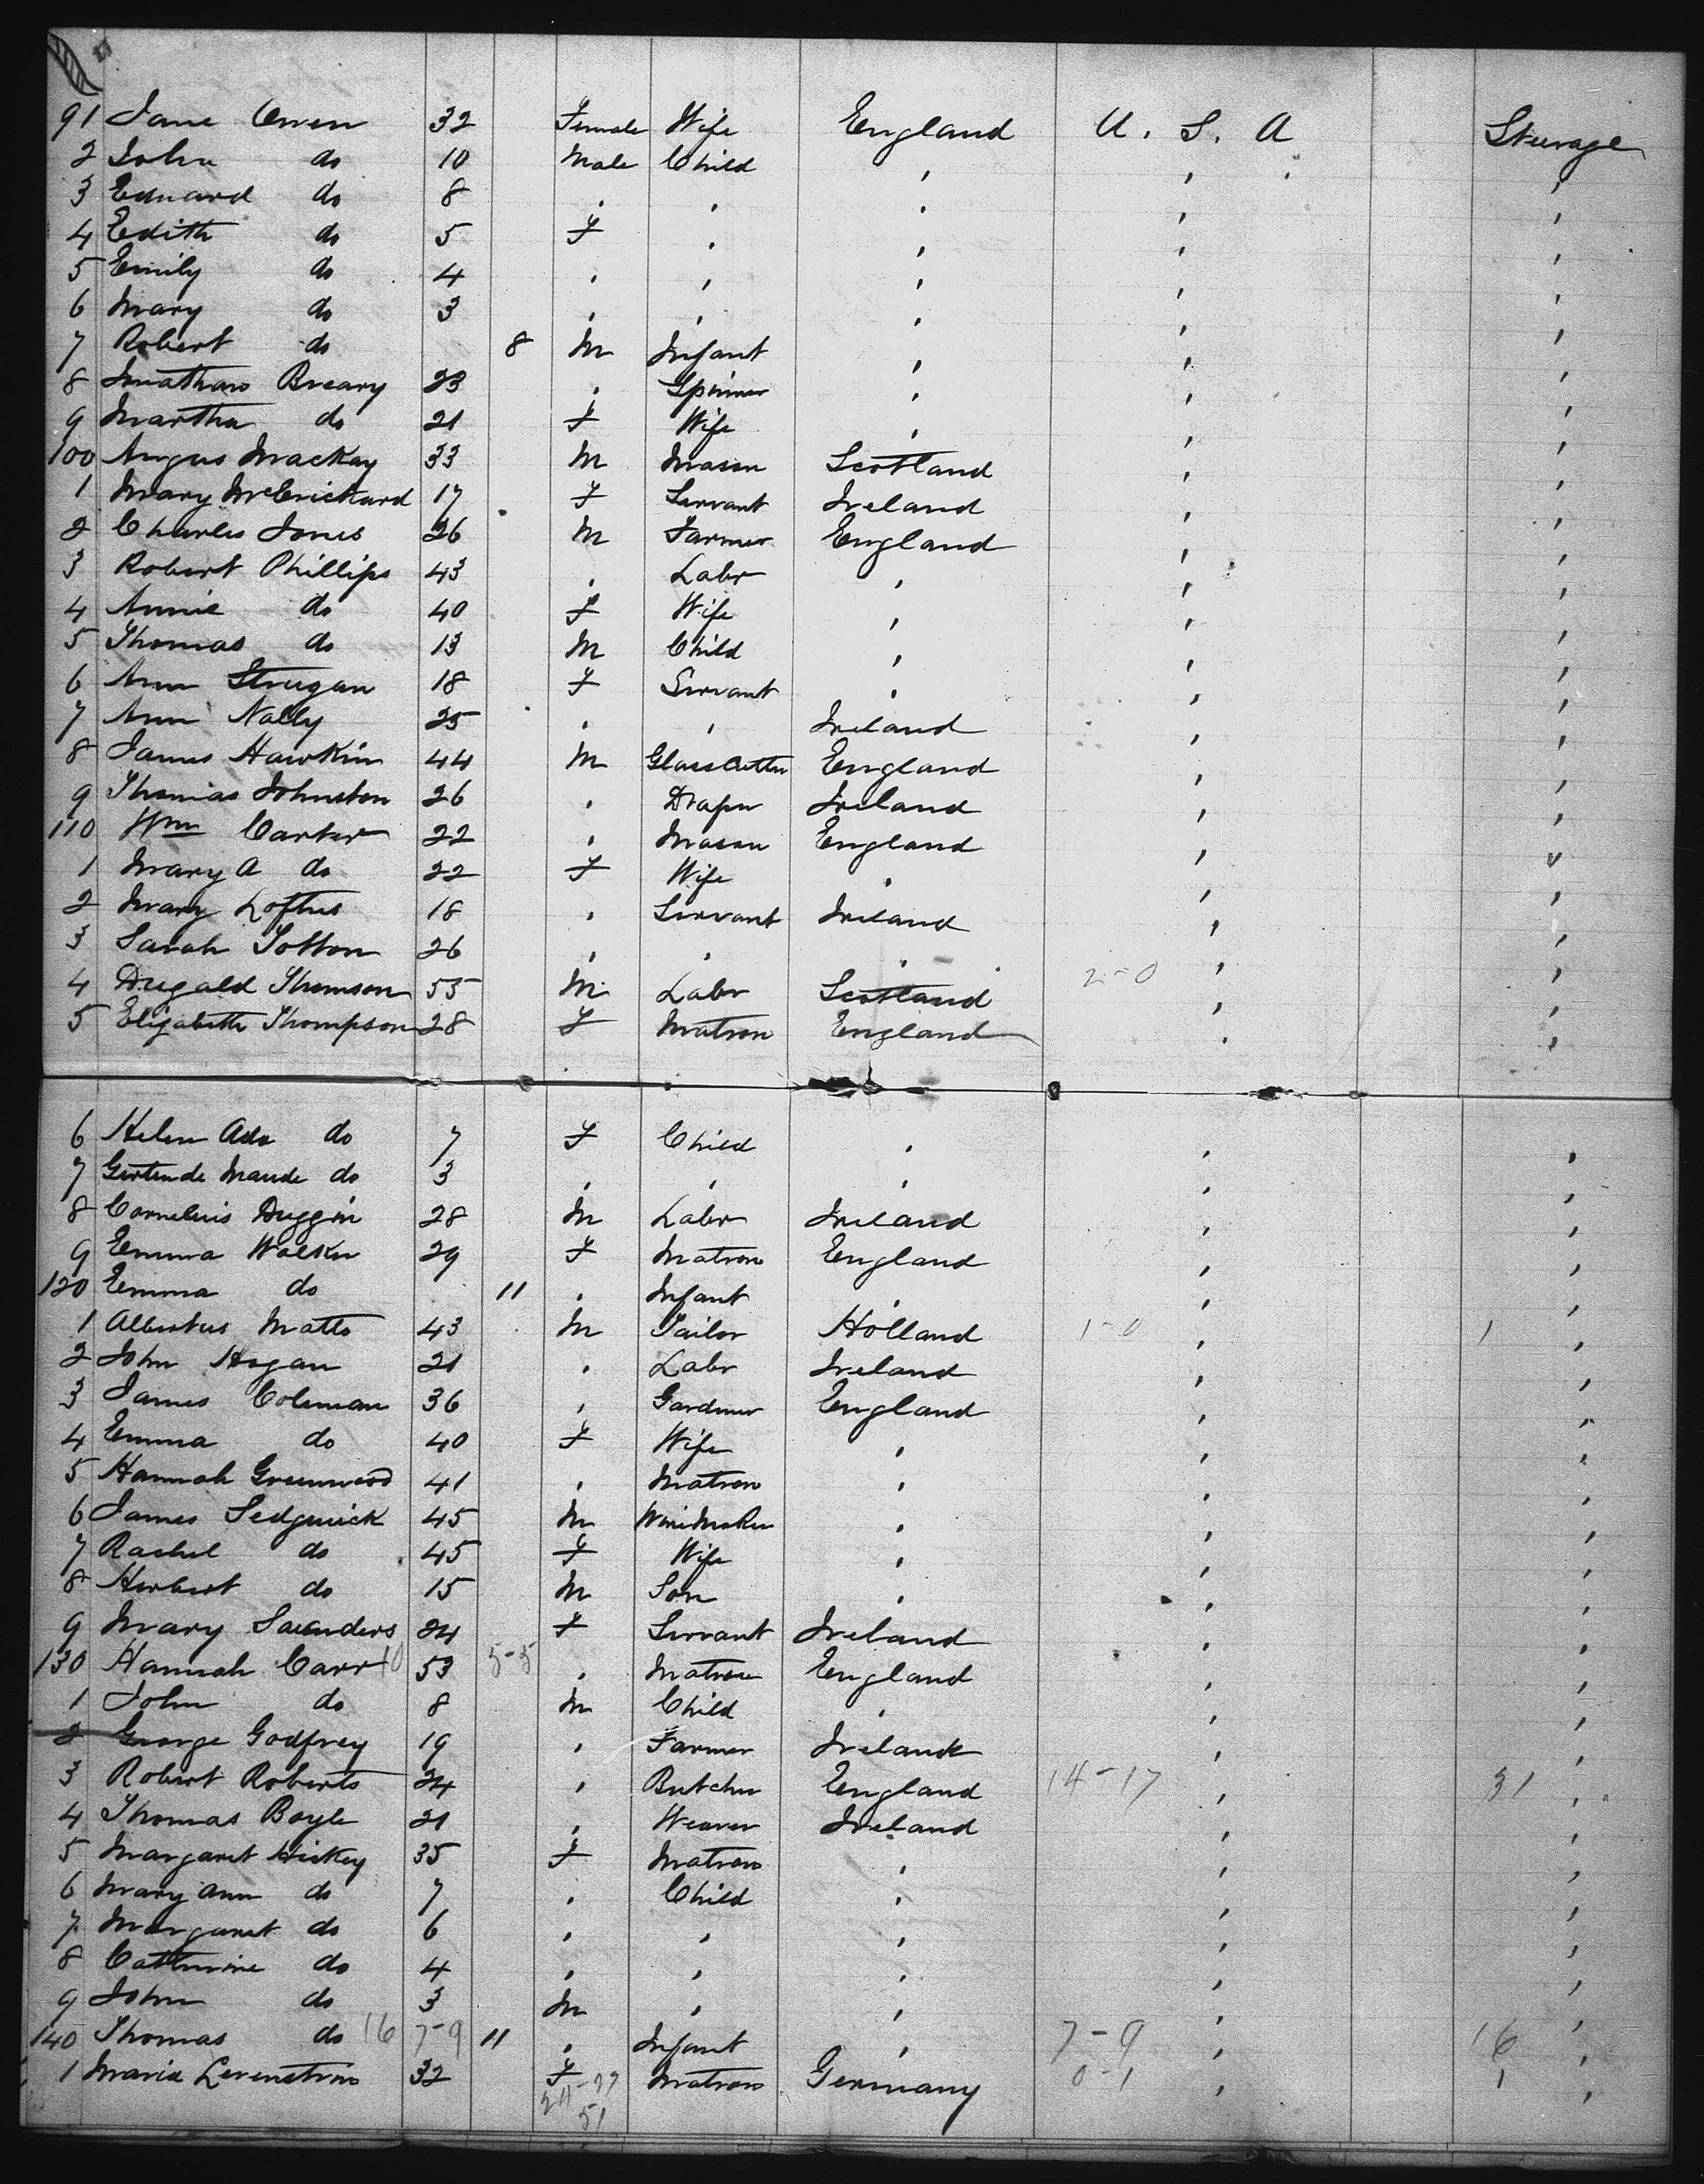 91 Jane Owen 32 Female Wife England U. S. A Steerage
2 John do 10 Male Child , , ,
3 Edward do 8 , , , , ,
4 Edith do 5 F , , , ,
5 Emily do 4 , , , , ,
6 Mary do 3 , , , , ,
7 Robert do 8 M Infant , , ,
8 Jonathan Breary 23 , Spinner , , ,
9 Martha do 21 F Wife , , ,
100 Angus Mackay 33 M Mason Scotland , ,
1 Mary 17 F Servant Ireland , ,
2 Charles Jones 26 M Farmer England , ,
3 Robert Phillips 43 , Labr , , ,
4 Annie do 40 F Wife , , ,
5 Thomas do 13 M Child , , ,
6 Ann 18 F Servant , , ,
7 Ann Nally 25 , , Ireland , ,
8 James Hawkin 44 M Glass Cutter England , ,
9 Thomas Johnston 26 , Draper Ireland , ,
110 Wm Carter 22 , Mason England , ,
1 Mary A do 22 F Wife , , ,
2 Mary Loftus 18 , Servant Ireland , ,
3 Sarah Totton 26 , , , , ,
4 Dugald Thomson 55 M Labr Scotland 2-0 , ,
5 Elizabeth Thompson 28 F Matron England , ,
6 Helen Ada do 7 F Child , , ,
7 Gertrude Maude do 3 , , , , ,
8 Cornelius Duggin 28 M Labr Ireland , ,
9 Emma Walker 29 F Matron England , ,
120 Emma do 11 , Infant , , ,
1 Albertus Matts 43 M Tailor Holland 1-0 , 1 ,
2 John Hogan 21 , Labr Ireland , ,
3 James Coleman 36 , Gardner England , ,
4 Emma do 40 F Wife , , ,
5 Hannah Greenwood 41 , Matron , , ,
6 James Sedgwick 45 M , , ,
7 Rachel do 45 F Wife , , ,
8 Herbert do 15 M Son , , ,
9 Mary Saunders 24 F Servant Ireland , ,
130 Hannah Carr 10 53 5-5 , Matron England , ,
1 John do 8 M Child , , ,
2 George Godfrey 19 , Farmer Ireland , ,
3 Robert Roberts 24 , Butcher England 14-17 , 31 ,
4 Thomas Boyle 21 , Weaver Ireland , ,
5 Margaret Hickey 35 F Matron , , ,
6 Mary Ann do 7 , Child , , ,
7 Margaret do 6 , , , , ,
8 Catherine do 4 , , , , ,
9 John do 3 M , , , ,
140 Thomas do 16 7-9 11 , Infant , 7-9 , 16 ,
1 Maria 32 F Matron Germany 0-1 , 1 ,
51